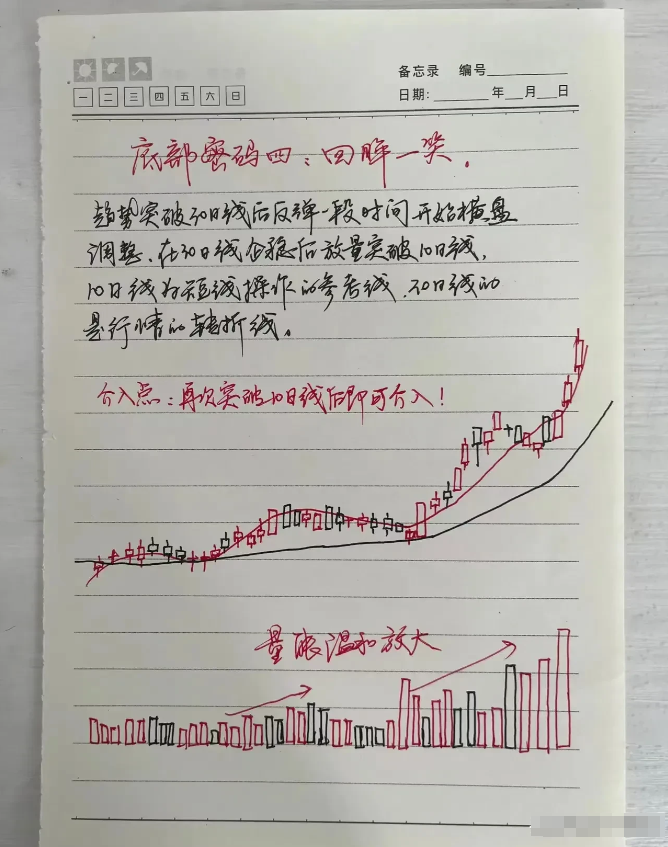 备忘录 编号
一 二 三 四 五 六 日
日期: 年 月 日
底部密码四：回眸一笑.
趋势突破30日线后反弹一段时间开始横盘
调整、在30日线企稳后放量突破10日线,
10日线为短线操作的参考线、30日线的
是行情的转折线。
介入点：再次突破10日线后即可介入！
量温和放大